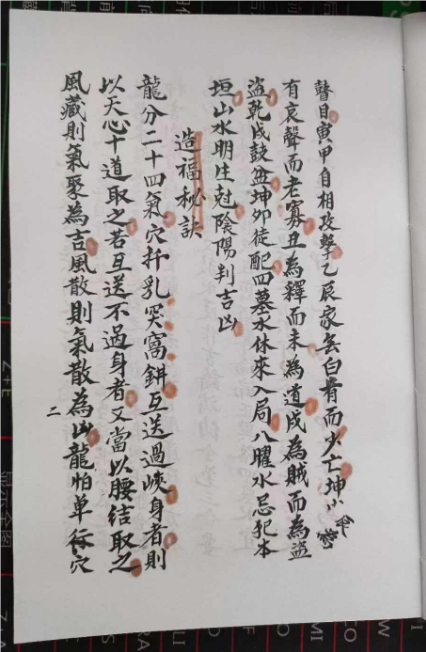 瞽目寅甲自相攻擊乙辰家白而少亡坤
有哀聲而老寡丑為釋而未為道戌為賊而為盜
盜乾戌鼓盆坤卯徒配四墓水休來入局八曜水忌犯本
垣山水明生尅陰陽判吉凶
造福秘訣
龍分二十四氣穴扦乳突窩鉗互送過峽身者則
以天心十道取之若互送不過身者又當以腰結取之
風藏則氣聚為吉風散則氣散為凶龍怕单行穴
二